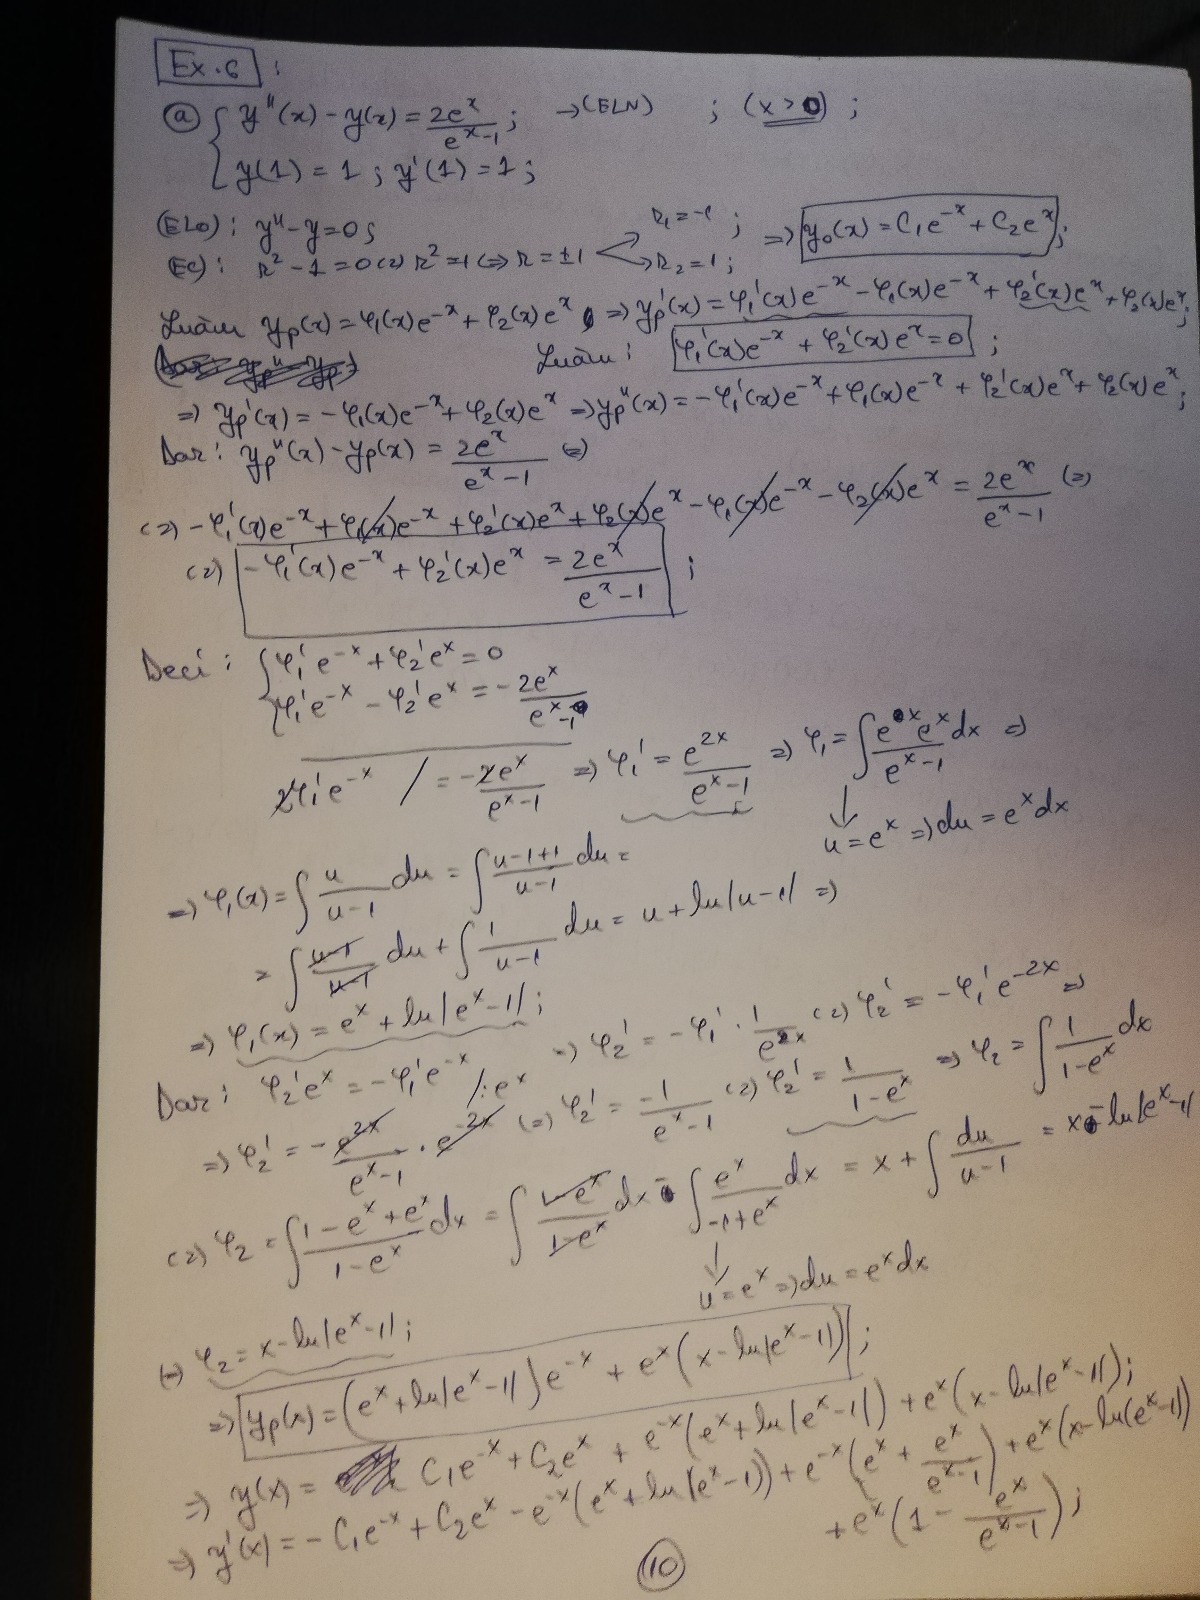 Ex.6 :
(a) { y''(x) - y(x) = 2e^x/(e^x-1) ; → (ELN) ; (x > 0) ;
y(1) = 1 ; y'(1) = 1 ;
(ELO) : y'' - y = 0 ; r₁ = -1 ; ⇒ y₀(x) = C₁e^-x + C₂e^x ;
(EC) : r² - 1 = 0 (=) r² = 1 (⇒ r = ±1 → r₂ = 1 ;
Luăm y_p(x) = φ₁(x)e^-x + φ₂(x)e^x ; ⇒ y_p'(x) = φ₁'(x)e^-x - φ₁(x)e^-x + φ₂'(x)e^x + φ₂(x)e^x ;
Luăm : φ₁'(x)e^-x + φ₂'(x)e^x = 0 ;
⇒ y_p'(x) = -φ₁(x)e^-x + φ₂(x)e^x ⇒ y_p''(x) = -φ₁'(x)e^-x + φ₁(x)e^-x + φ₂'(x)e^x + φ₂(x)e^x ;
Dar : y_p''(x) - y_p(x) = 2e^x/(e^x-1) (=)
(=) -φ₁'(x)e^-x + φ₁(x)e^-x + φ₂'(x)e^x + φ₂(x)e^x - φ₁(x)e^-x - φ₂(x)e^x = 2e^x/(e^x-1) (=)
(=) -φ₁'(x)e^-x + φ₂'(x)e^x = 2e^x/(e^x-1) ;
Deci : { φ₁'e^-x + φ₂'e^x = 0
φ₁'e^-x - φ₂'e^x = -2e^x/(e^x-1)
2φ₁'e^-x / = -2e^x/(e^x-1) ⇒ φ₁' = e^2x/(e^x-1) ⇒ φ₁ = ∫ e^x e^x dx/(e^x-1) ⇒
u = e^x ⇒ du = e^x dx
⇒ φ₁(x) = ∫ u/(u-1) du = ∫ (u-1+1)/(u-1) du =
= ∫ (u-1)/(u-1) du + ∫ 1/(u-1) du = u + ln|u-1| ⇒
⇒ φ₁(x) = e^x + ln|e^x-1| ;
Dar : φ₂'e^x = -φ₁'e^-x /:e^x ⇒ φ₂' = -φ₁' · 1/e^2x (=) φ₂' = -φ₁'e^-2x ⇒
⇒ φ₂' = -e^2x/(e^x-1) · e^-2x (=) φ₂' = -1/(e^x-1) (=) φ₂' = 1/(1-e^x) ⇒ φ₂ = ∫ 1/(1-e^x) dx
(=) φ₂ = ∫ (1-e^x+e^x)/(1-e^x) dx = ∫ (1-e^x)/(1-e^x) dx - ∫ e^x/(-1+e^x) dx = x + ∫ du/(u-1) = x - ln|e^x-1|
u = e^x ⇒ du = e^x dx
(=) φ₂ = x - ln|e^x-1| ;
⇒ y_p(x) = (e^x + ln|e^x-1|)e^-x + e^x(x - ln|e^x-1|) ;
⇒ y(x) = C₁e^-x + C₂e^x + e^-x(e^x + ln|e^x-1|) + e^x(x - ln|e^x-1|) ;
⇒ y'(x) = -C₁e^-x + C₂e^x - e^-x(e^x + ln|e^x-1|) + e^-x(e^x + e^x/(e^x-1)) + e^x(x - ln(e^x-1))
+ e^x(1 - e^x/(e^x-1)) ;
10